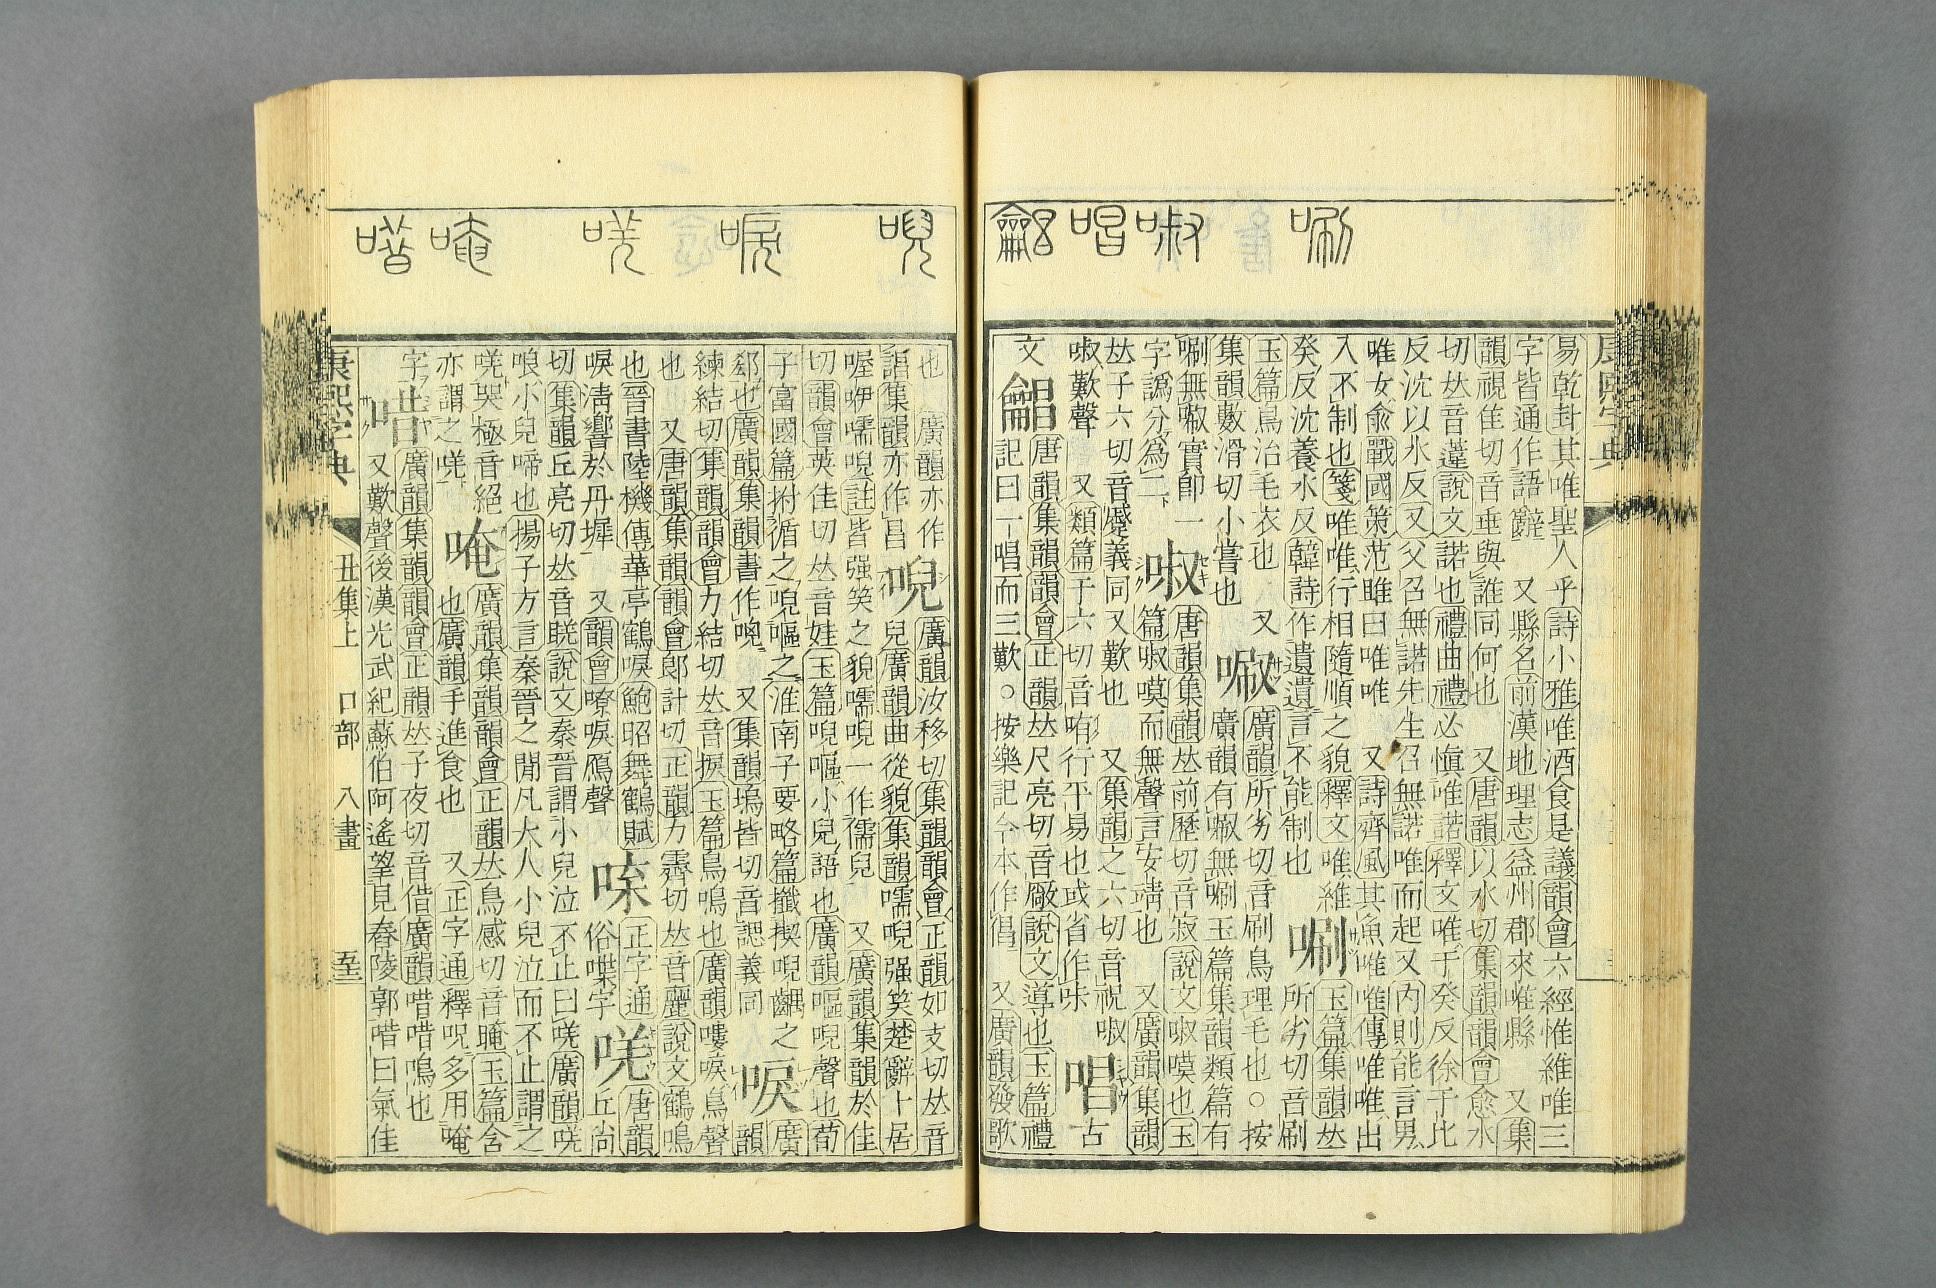 唰 𠴫 唱
易乾卦其唯聖人乎詩小雅唯酒食是議韻會六經惟維唯三
字皆通作語辭 又縣名前漢地理志益州郡來唯縣 又集
韻視隹切音垂與誰同何也 又唐韻以水切集韻韻會愈水
切𠀤音 說文諾也禮曲禮必愼唯諾釋文唯于癸反徐于比
反沈以水反又父召無諾先生召無諾唯而起又內則能言男
唯女俞戰國策范雎曰唯唯 又詩齊風其魚唯唯傳唯唯出
入不制也箋唯唯行相隨順之貌釋文唯維 唰 玉篇集韻𠀤
癸反沈養水反韓詩作遺遺言不能制也 所劣切音刷
玉篇鳥治毛衣也 又 廣韻所劣切音刷鳥理毛也○按
集韻數滑切小嘗也 廣韻有 無唰玉篇集韻類篇有
唰無 實卽一 𠴫 唐韻集韻𠀤前歷切音寂說文𠴫嗼也玉
字譌分爲二 篇𠴫嗼而無聲言安靖也 又廣韻集韻
𠀤子六切音蹙義同又歎也 又集韻之六切音祝𠴫
𠴫歎聲 又類篇于六切音 行平易也或省作 唱 古
文 唐韻集韻韻會正韻𠀤尺亮切音厰說文導也玉篇禮
記曰一唱而三歎○按樂記今本作倡 又廣韻發歌
唲 唳 唴 唵 唶
也 廣韻亦作 唲 廣韻汝移切集韻韻會正韻如支切𠀤音
謌集韻亦作昌 兒廣韻曲從貌集韻嚅唲强笑楚辭卜居
喔咿嚅唲註皆强笑之貌嚅唲一作儒兒 又廣韻集韻於佳
切韻會英佳切𠀤音娃玉篇唲嘔小兒語也廣韻嘔唲聲也荀
子富國篇拊循之唲嘔之淮南子要略篇攕揳唲齵之 唳 廣
郄也廣韻集韻書作 又集韻塢皆切音 義同 韻
練結切集韻韻會力結切𠀤音捩玉篇鳥鳴也廣韻嘍唳鳥聲
也 又唐韻集韻韻會郞計切正韻力霽切𠀤音麗說文鶴鳴
也晉書陸機傳華亭鶴唳鮑昭舞鶴賦 正字通
唳淸響於丹墀 又韻會嘹唳鴈聲 俗喋字 唴 唐韻
切集韻丘亮切𠀤音 說文秦晉謂小兒泣不止曰唴廣韻唴 丘尙
哴小兒啼也揚子方言秦晉之閒凡大人小兒泣而不止謂之
唴哭極音絕 唵 廣韻集韻韻會正韻𠀤烏感切音晻玉篇含
亦謂之唴 也廣韻手進食也 又正字通釋呪多用唵
字 唶 廣韻集韻韻會正韻𠀤子夜切音借廣韻唶唶鳴也
又歎聲後漢光武紀蘇伯阿遙望見舂陵郭唶曰氣佳
康熙字典 丑集上 口部 八畫 五三
康熙字典